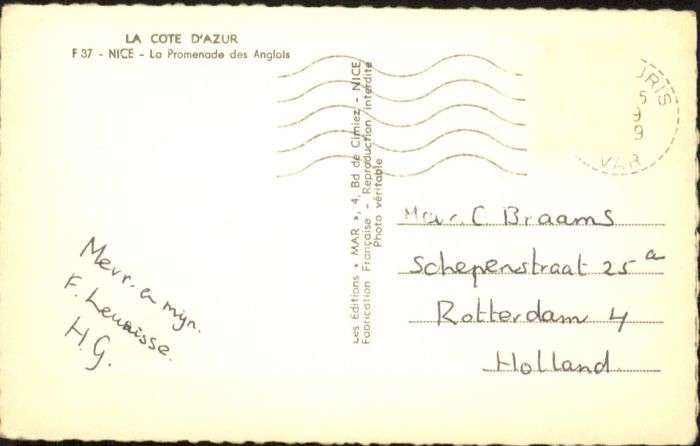 LA COTE D'AZUR
F 37 - NICE - La Promenade des Anglais
Les Editions « MAR », 4, Bd de Cimiez - NICE
Fabrication Française - Reproduction interdite
Photo véritable
URIS
5
9
9
VAR
Mevr. C Braams
Schepenstraat 25 a
Rotterdam 4
Holland
Mevr. en mijn.
F.
H.G.